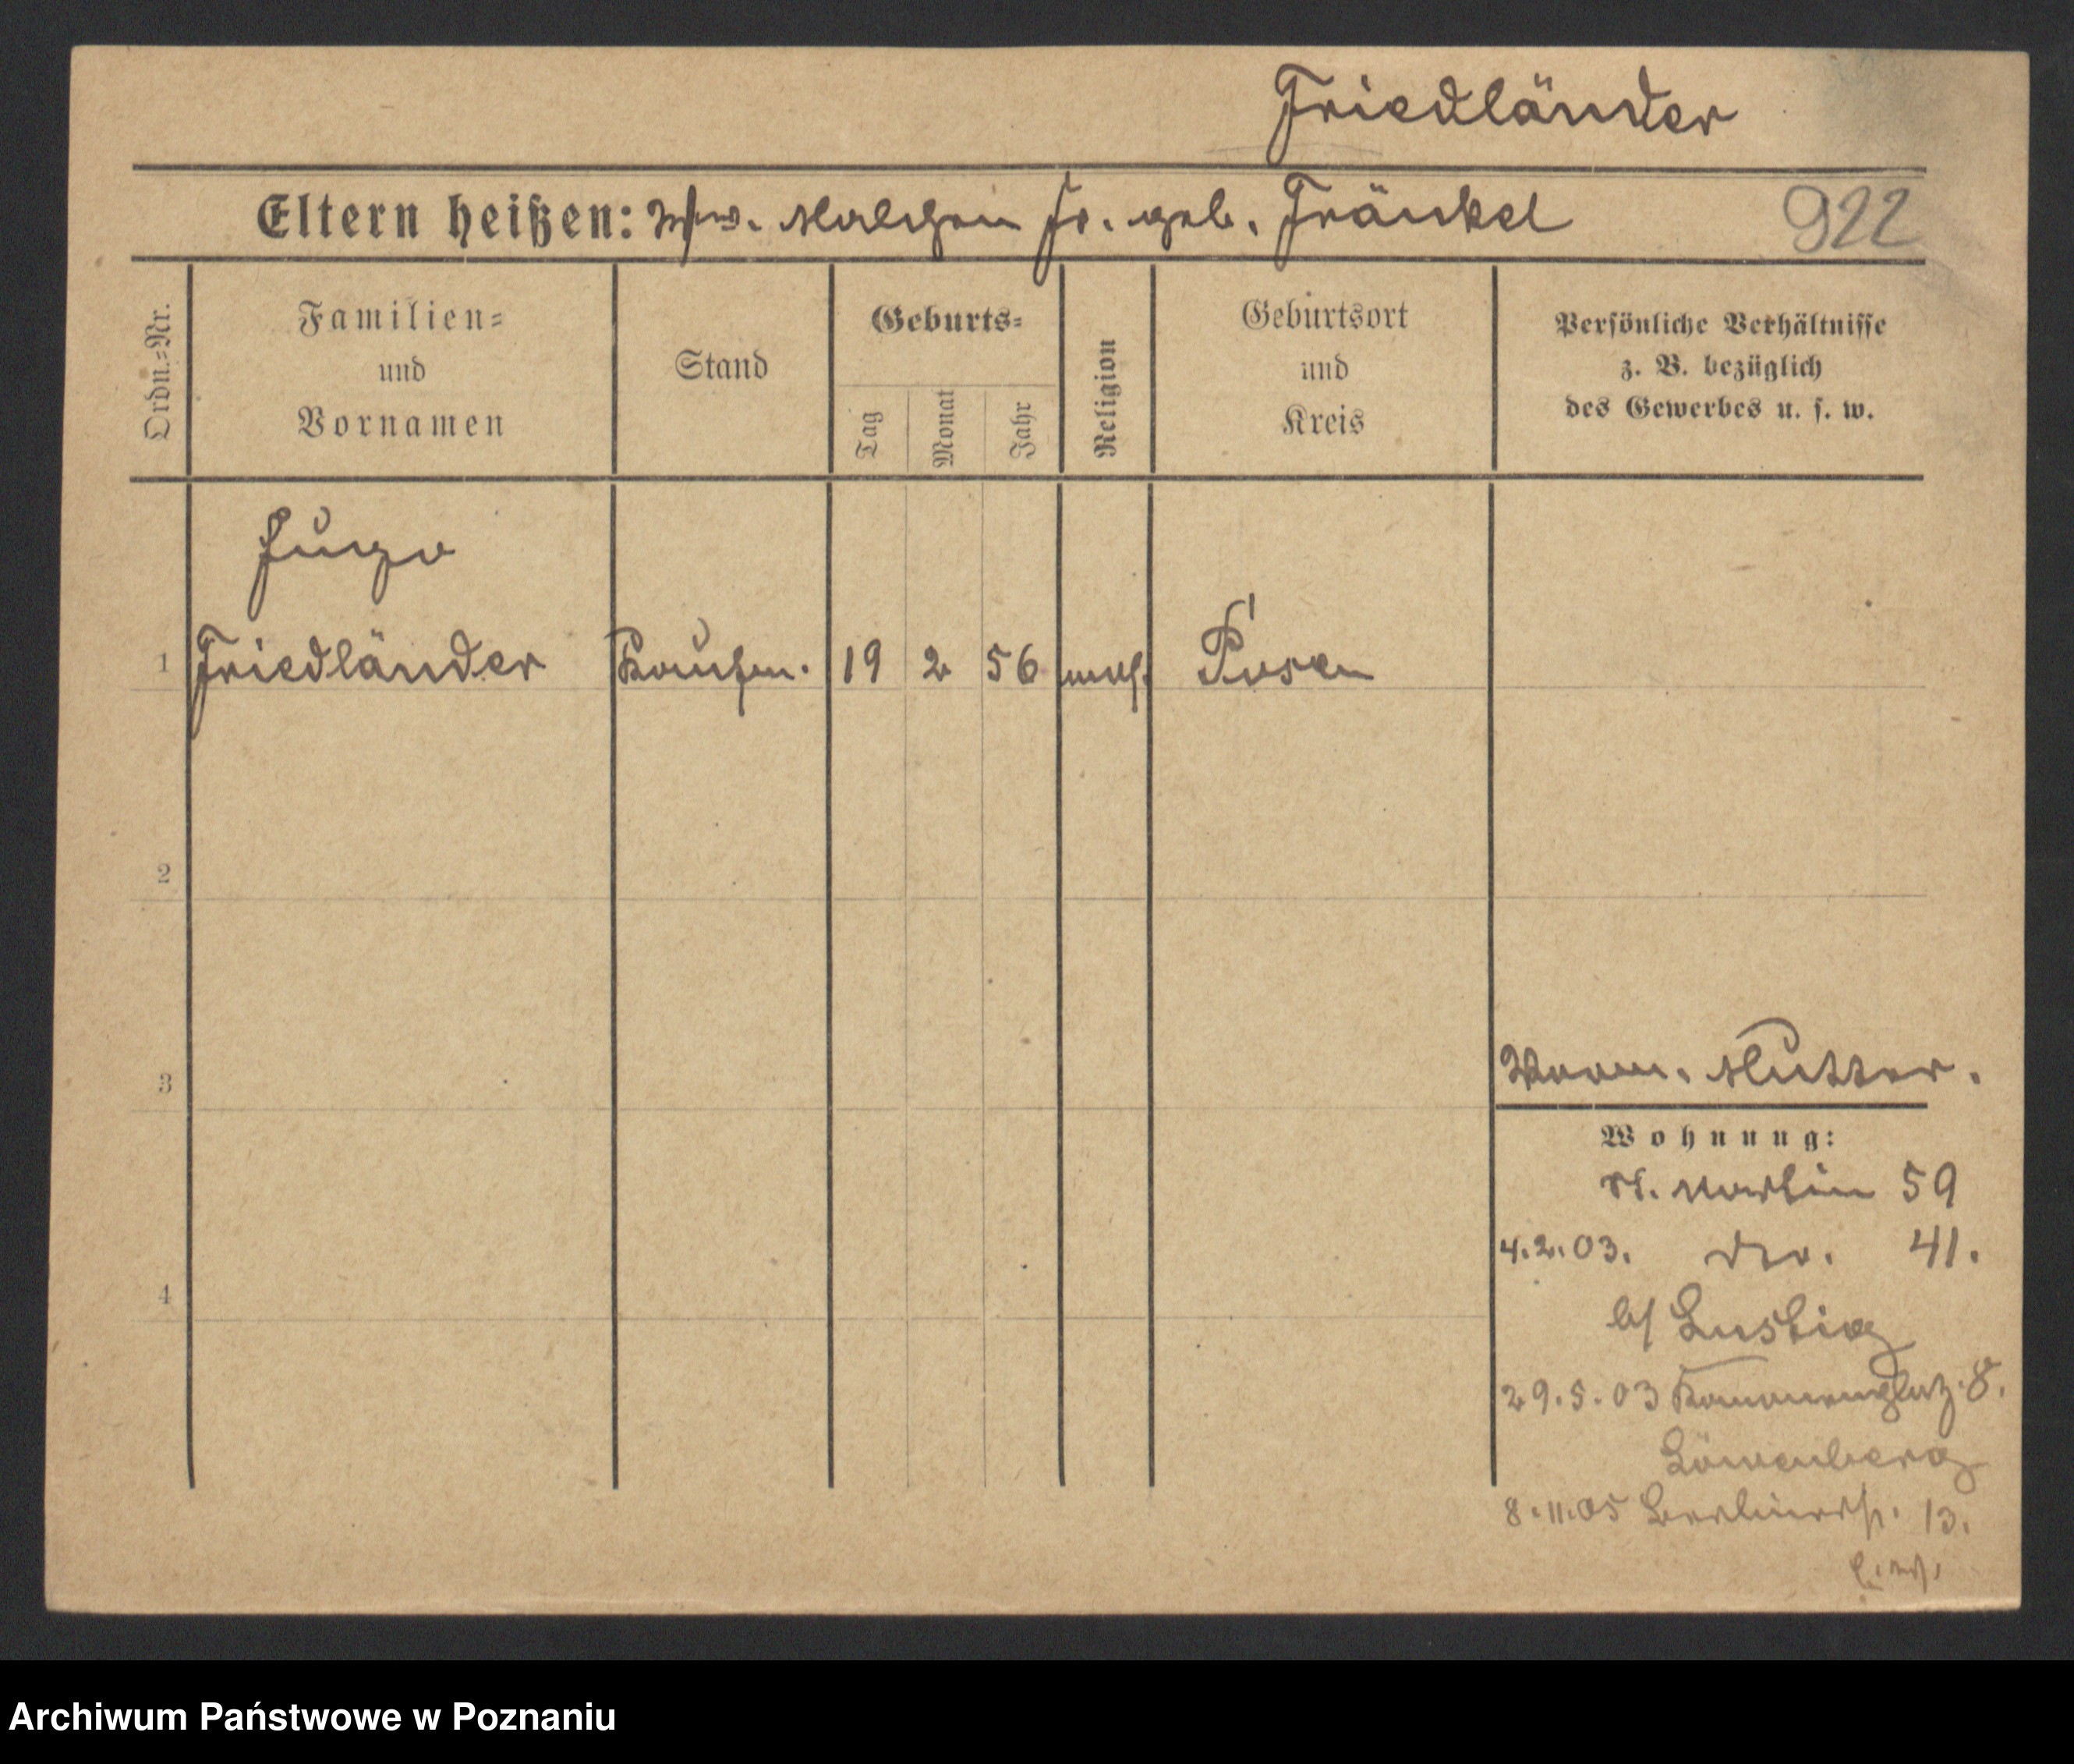 Friedländer
Eltern heißen: Wwe. Malchen Fr. geb. Fränkel
922
Ordn.=Nr.
Familien=
und
Vornamen
Stand
Geburts=
Tag
Monat
Jahr
Religion
Geburtsort
und
Kreis
Persönliche Verhältnisse
z. B. bezüglich
des Gewerbes u. s. w.
Hugo
1 Friedländer Kaufm. 19 2 56 mos. Posen
2
3
4
Mutter.
Wohnung:
St. Martin 59
4.2.03. do. 41.
b/ Lustig
29.5.03 8.
Löwenberg
8.11.05 Berlinerstr. 13.
Archiwum Państwowe w Poznaniu